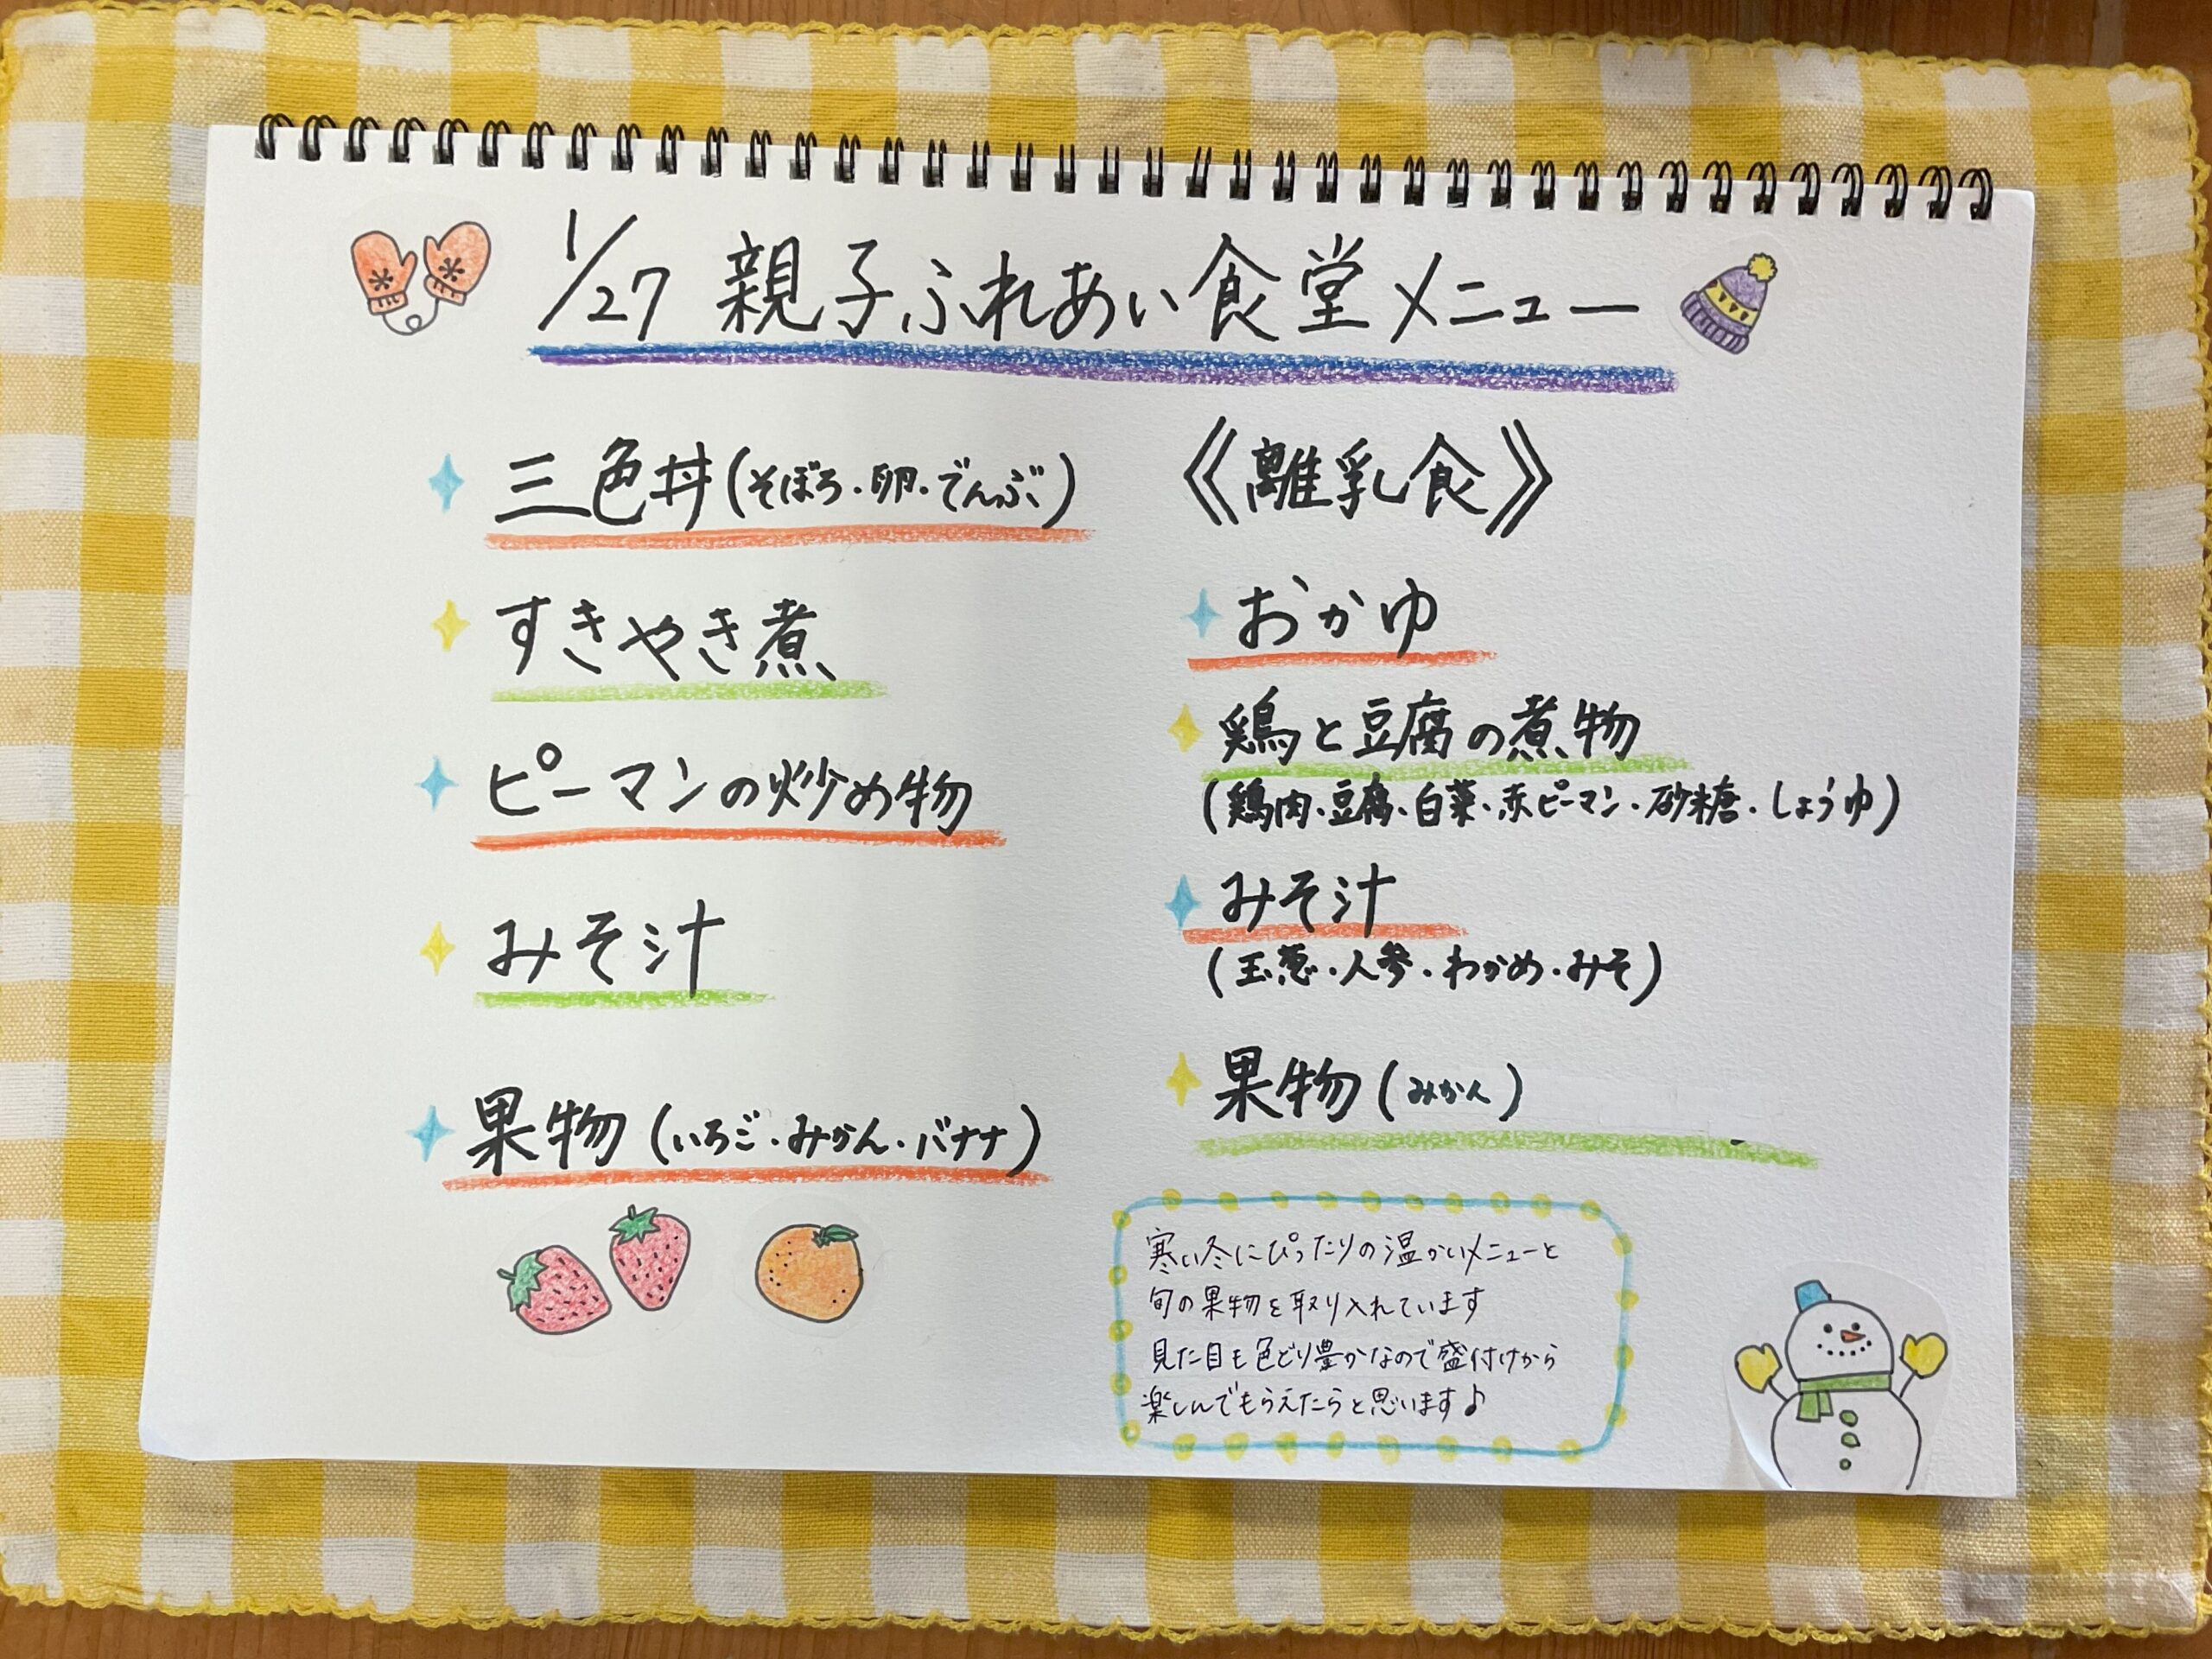 1/27 親子ふれあい食堂メニュー
三色丼(そぼろ・卵・でんぶ)
すきやき煮
ピーマンの炒め物
みそ汁
果物(いちご・みかん・バナナ)
《離乳食》
おかゆ
鶏と豆腐の煮物
(鶏肉・豆腐・白菜・赤ピーマン・砂糖・しょうゆ)
みそ汁
(玉葱・人参・わかめ・みそ)
果物(みかん)
寒い冬にぴったりの温かいメニューと
旬の果物を取り入れています
見た目も色どり豊かなので盛付けから
楽しんでもらえたらと思います♪